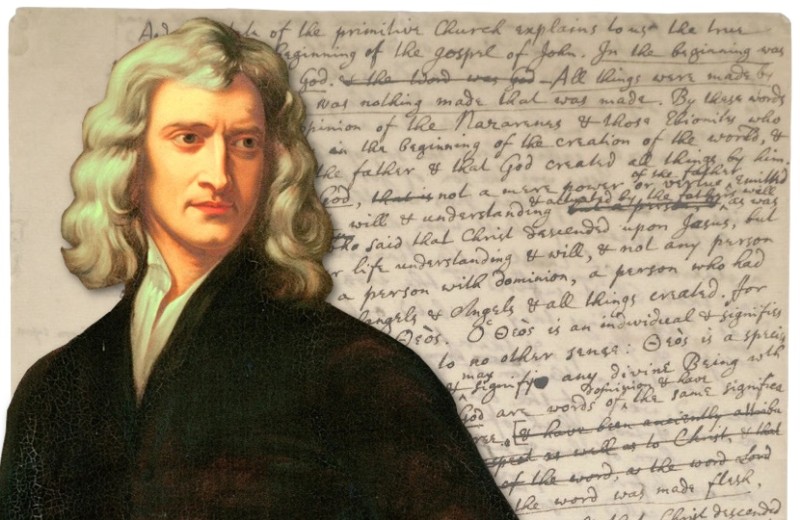 And of the primitive Church explains to us the true
beginning of the gospel of John. In the beginning was
God. & the Word was God All things were made by
was nothing made that was made. By these words
opinion of the Nazarenes & those Ebionites who
in the beginning of the creation of the world, &
the father & that God created all things by him.
of the father
God, that is not a mere power or vertue emitted
& actuated by the father as well
will & understanding a person as was
who said that Christ descended upon Jesus, but
life understanding & will, & not any person
a person with dominion, a person who had
Angels & all things created. For
Θεὸς. Ὁ Θεὸς is an individual & signifies
to no other sense: Θεὸς is a species
may
& signify any divine Being with
Dominion & have
God are words of the same significa
[& have been anciently attribu
as well as to Christ, & that
of the word, as the word Lord
the word was made flesh.
Christ descended